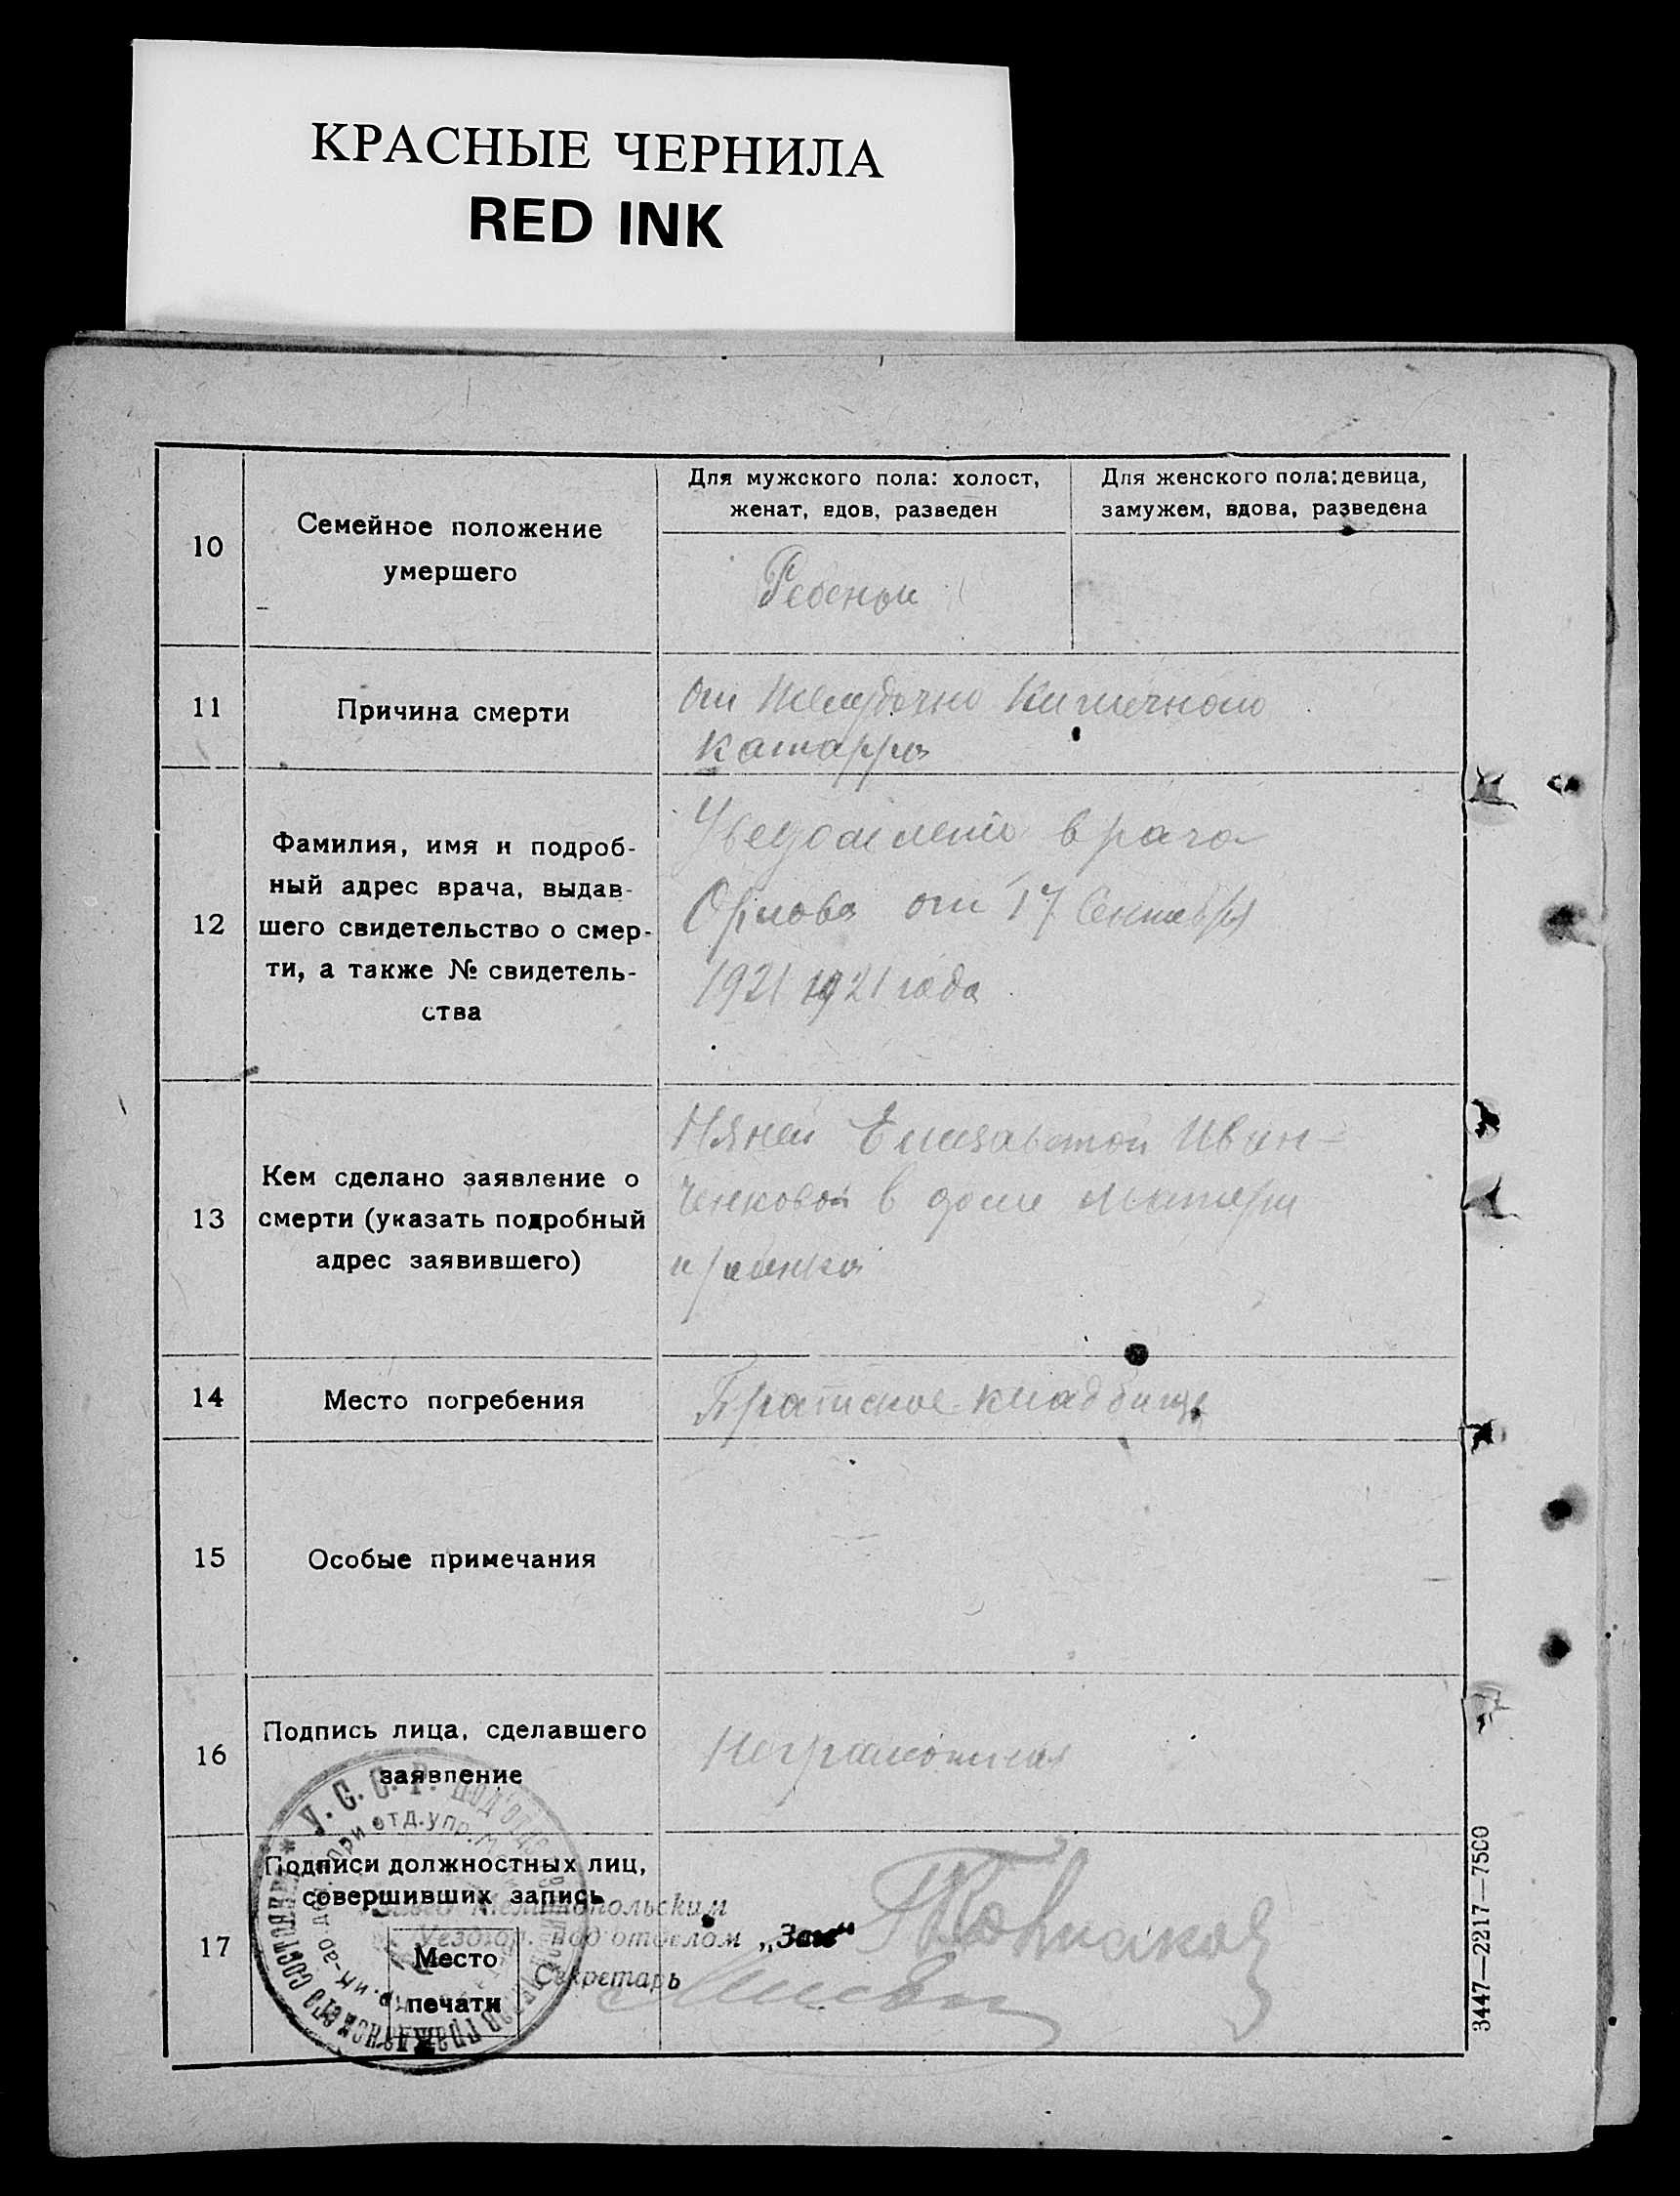 КРАСНЫЕ ЧЕРНИЛА
RED INK
10
Семейное положение
умершего
Для мужского пола: холост,
женат, вдов, разведен
Для женского пола: девица,
замужем, вдова, разведена
Ребенок
11
Причина смерти
От Желудочно Кишечного
катарра
12
Фамилия, имя и подроб-
ный адрес врача, выдав-
шего свидетельство о смер-
ти, а также № свидетель-
ства
Уведомление врача
Орлова от 17 Сентября
1921 1921 года
13
Кем сделано заявление о
смерти (указать подробный
адрес заявившего)
Няней Елизаветой Иван-
ченковой в доме Матери
14
Место погребения
Братское кладбище
15
Особые примечания
16
Подпись лица, сделавшего
заявление
Неграмотная
17
Подписи должностных лиц,
совершивших запись
Место
печати
У. С. С. Р.
при отд. упр.
гражданского состояния
Мелитопольским
под'отделом „Заг“
Секретарь
3447—2217—7500